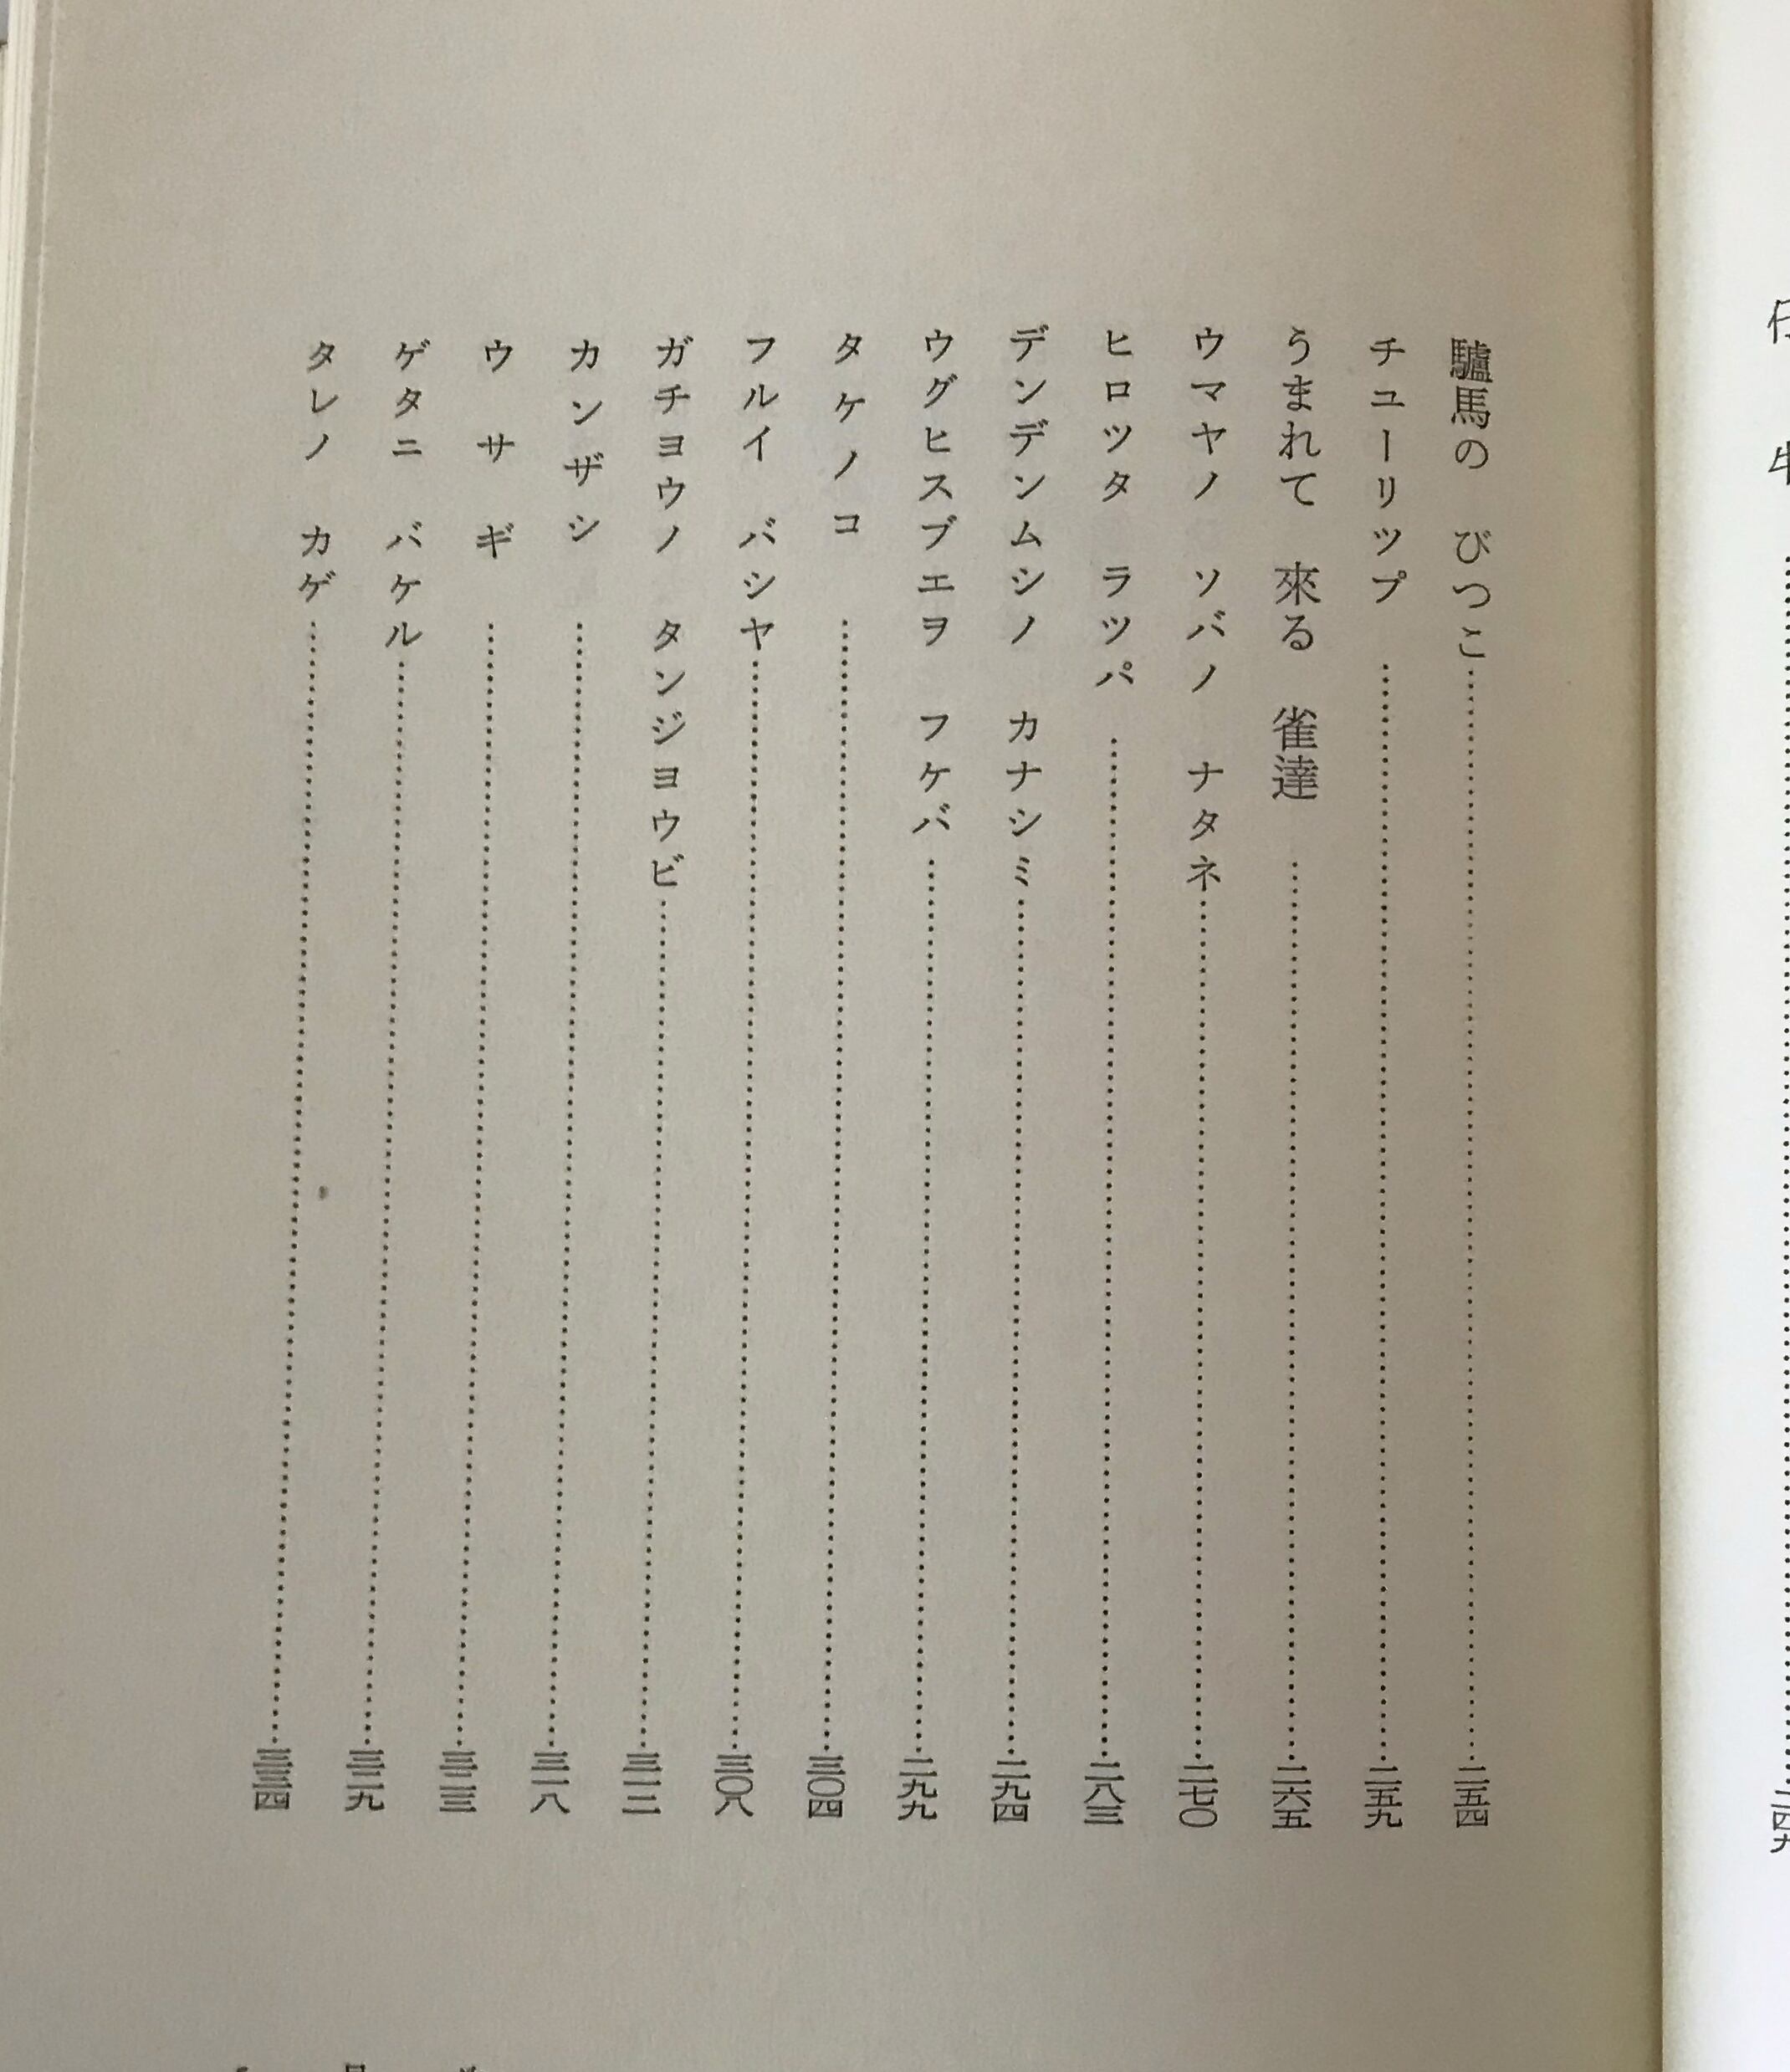 驢馬の びつこ……二五四
チユーリツプ……二五九
うまれて 來る 雀達……二六五
ウマヤノ ソバノ ナタネ……二七〇
ヒロツタ ラツパ……二八三
デンデンムシノ カナシミ……二九四
ウグヒスブエヲ フケバ……二九九
タケノコ……三〇四
フルイ バシヤ……三〇八
ガチヨウノ タンジヨウビ……三一二
カンザシ……三一八
ウサギ……三二三
ゲタニ バケル……三二九
タレノ カゲ……三三四